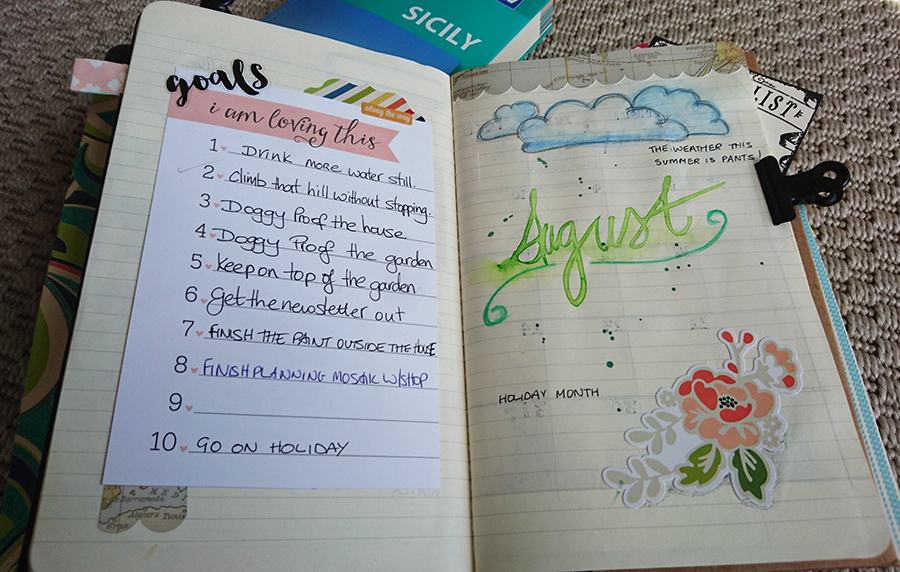 SICILY
goals
along the way
i am loving this
1 Drink more water still.
2 Climb that hill without stopping.
3 Doggy Proof the house
4 Doggy Proof the garden
5 Keep on top of the garden
6 Get the newsletter out
7 FINISH THE PAINT OUTSIDE THE HOUSE
8 FINISH PLANNING MOSAIK W/SHOP
9
10 GO ON HOLIDAY
Serrameda
Algiers Tunis
Oran
THE WEATHER THIS
SUMMER IS PANTS!
August
HOLIDAY MONTH
LIST